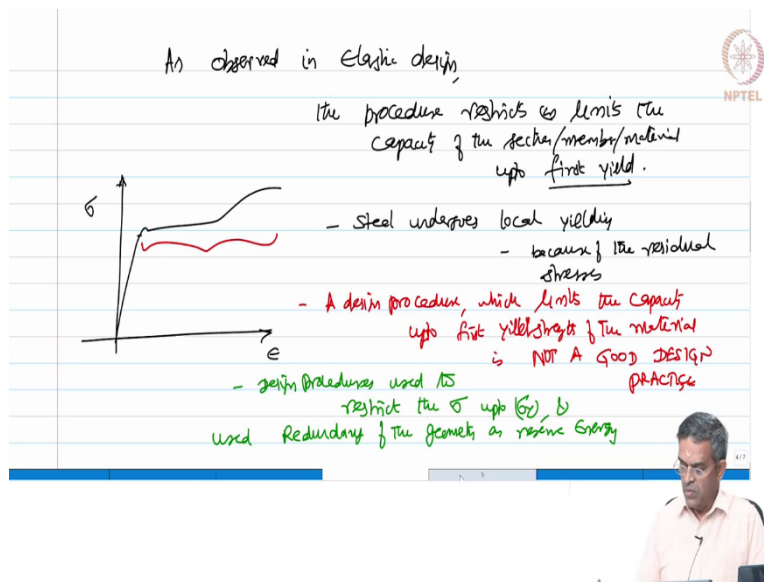 As observed in Elastic design,
NPTEL
the procedure restricts or limits the
capacity of the section/member/material
upto first yield.
σ
- Steel undergoes local yielding
- because of the residual
stresses
- A design procedure, which limits the capacity
upto first yield strength of the material
is NOT A GOOD DESIGN
PRACTICE
ε
- design procedures used to
restrict the σ upto (σy), &
used Redundancy of the geometry as reserve Energy
4/7